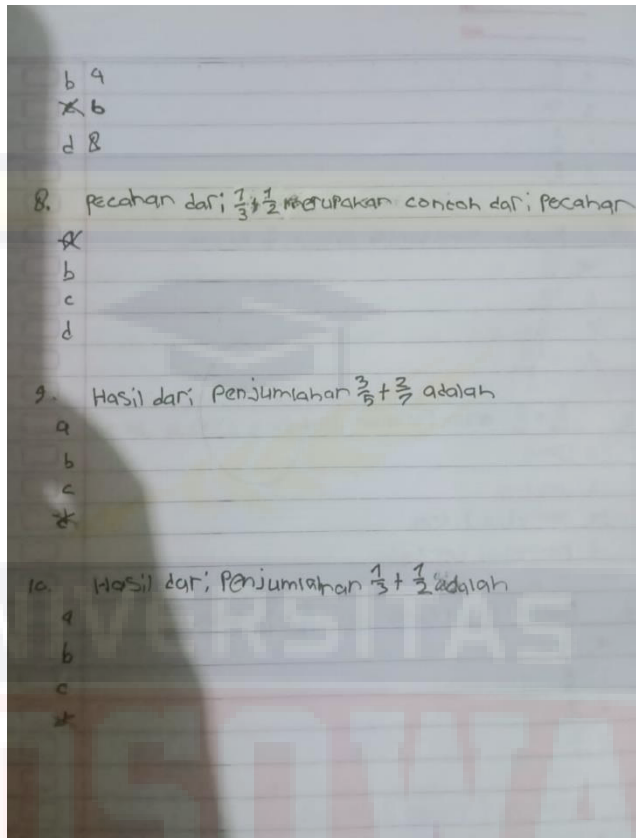 b 9
c 6
d 8
8. Pecahan dari 1/3, 1/2 merupakan contoh dari Pecahan
a
b
c
d
9. Hasil dari Penjumlahan 3/5 + 2/7 adalah
a
b
c
d
10. Hasil dari Penjumlahan 1/3 + 1/2 adalah
a
b
c
d